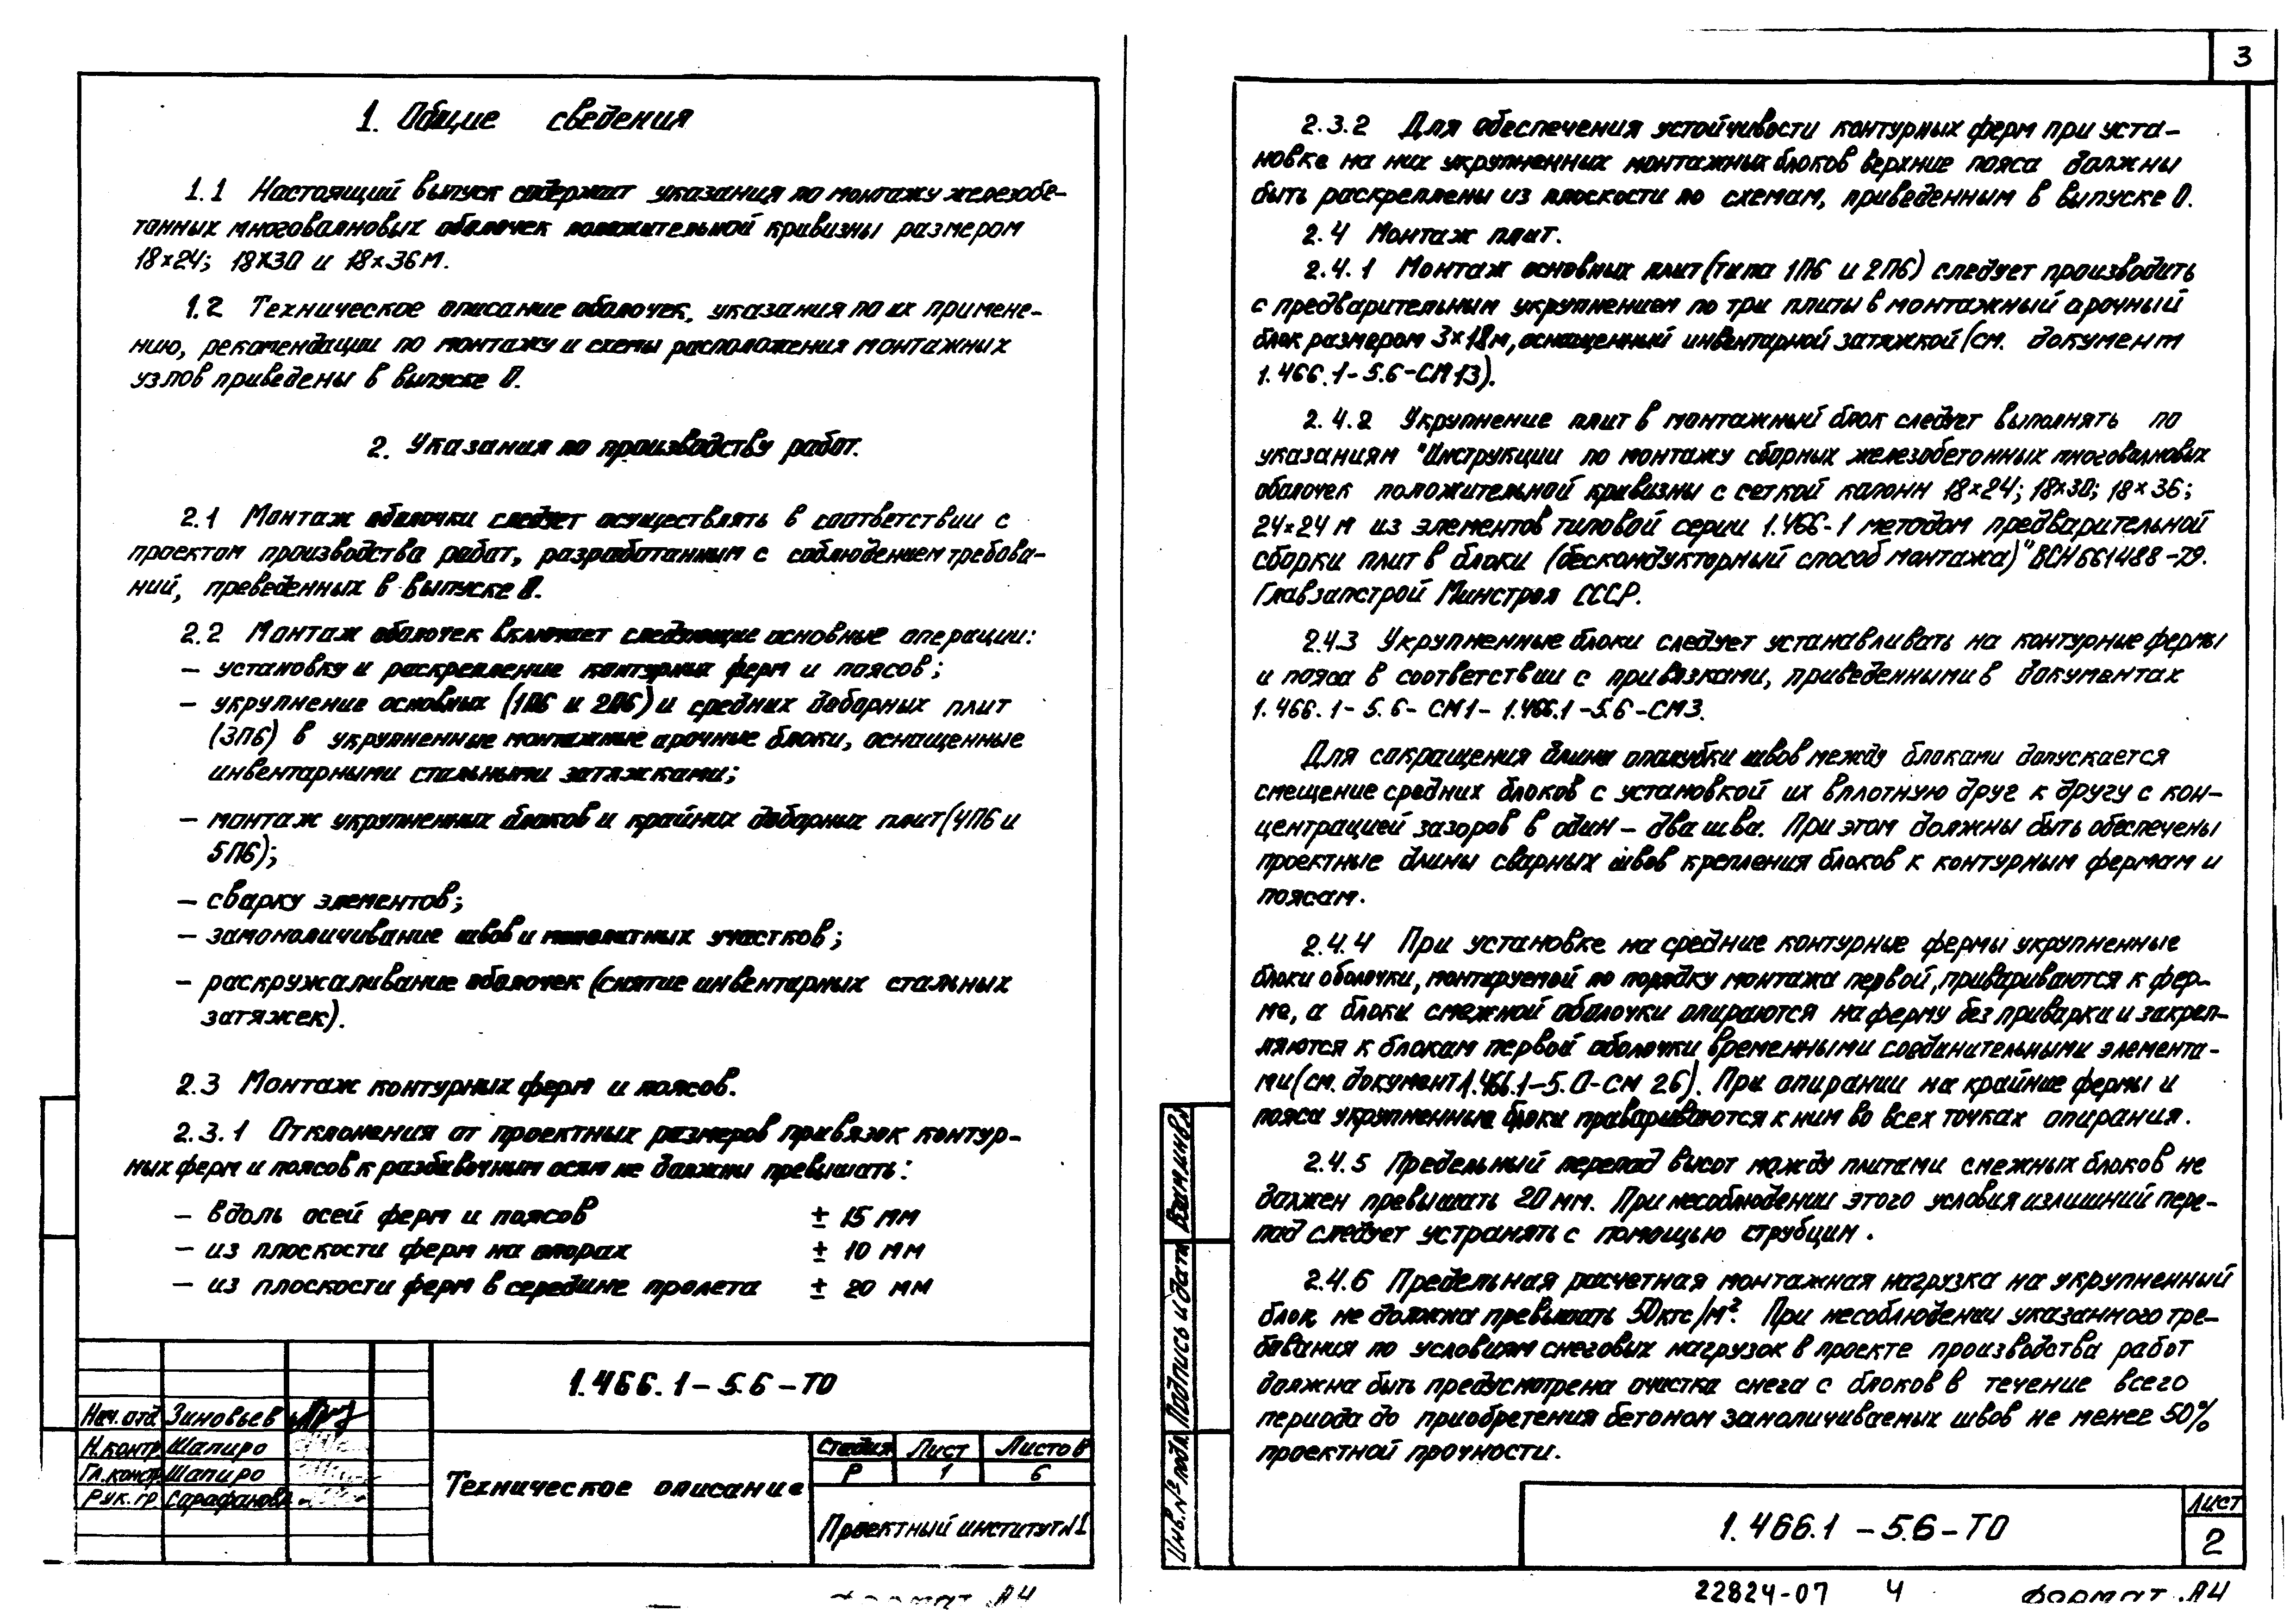 1. Общие сведения
1.1 Настоящий выпуск содержит указания по монтажу железобе-
тонных многоволновых оболочек положительной кривизны размером
18×24; 18×30 и 18×36 м.
1.2 Техническое описание оболочек, указания по их примене-
нию, рекомендации по монтажу и схемы расположения монтажных
узлов приведены в выпуске 0.
2. Указания по производству работ.
2.1 Монтаж оболочки следует осуществлять в соответствии с
проектом производства работ, разработанным с соблюдением требова-
ний, преведенных в выпуске 0.
2.2 Монтаж оболочек включает следующие основные операции:
– установку и раскрепление контурных ферм и поясов;
– укрупнение основных (1П6 и 2П6) и средних доборных плит
(3П6) в укрупненные монтажные арочные блоки, оснащенные
инвентарными стальными затяжками;
– монтаж укрупненных блоков и крайних доборных плит (4П6 и
5П6);
– сварку элементов;
– замоноличивание швов и монолитных участков;
– раскружаливание оболочек (снятие инвентарных стальных
затяжек).
2.3 Монтаж контурных ферм и поясов.
2.3.1 Отклонения от проектных размеров привязок контур-
ных ферм и поясов к разбивочным осям не должны превышать:
– вдоль осей ферм и поясов ± 15 мм
– из плоскости ферм на опорах ± 10 мм
– из плоскости ферм в середине пролета ± 20 мм
1.466.1-5.6-ТО
Нач.отд Зиновьев
Н.контр Шапиро
Гл.констр Шапиро
Рук.гр Сарафанова
Техническое описание
Стадия Лист Листов
Р 1 6
Проектный институт №1
Формат А4
3
2.3.2 Для обеспечения устойчивости контурных ферм при уста-
новке на них укрупненных монтажных блоков верхние пояса должны
быть раскреплены из плоскости по схемам, приведенным в выпуске 0.
2.4 Монтаж плит.
2.4.1 Монтаж основных плит (типа 1П6 и 2П6) следует производить
с предварительным укрупнением по три плиты в монтажный арочный
блок размером 3×18 м, оснащенный инвентарной затяжкой (см. документ
1.466.1-5.6-СМ13).
2.4.2 Укрупнение плит в монтажный блок следует выполнять по
указаниям "Инструкции по монтажу сборных железобетонных многоволновых
оболочек положительной кривизны с сеткой колонн 18×24; 18×30; 18×36;
24×24 м из элементов типовой серии 1.466-1 методом предварительной
сборки плит в блоки (бескондукторный способ монтажа)" ВСН 661488-79.
Главзапстрой Минстроя СССР.
2.4.3 Укрупненные блоки следует устанавливать на контурные фермы
и пояса в соответствии с привязками, приведенными в документах
1.466.1-5.6-СМ1-1.466.1-5.6-СМ3.
Для сокращения длины опалубки швов между блоками допускается
смещение средних блоков с установкой их вплотную друг к другу с кон-
центрацией зазоров в один – два шва. При этом должны быть обеспечены
проектные длины сварных швов крепления блоков к контурным фермам и
поясам.
2.4.4 При установке на средние контурные фермы укрупненные
блоки оболочки, монтируемой по порядку монтажа первой, привариваются к фер-
ме, а блоки смежной оболочки опираются на ферму без приварки и закреп-
ляются к блокам первой оболочки временными соединительными элемента-
ми (см. документ 1.466.1-5.0-СМ 26). При опирании на крайние фермы и
пояса укрупненные блоки привариваются к ним во всех точках опирания.
2.4.5 Предельный перепад высот между плитами смежных блоков не
должен превышать 20 мм. При несоблюдении этого условия излишний пере-
пад следует устранять с помощью струбцин.
2.4.6 Предельная расчетная монтажная нагрузка на укрупненный
блок не должна превышать 50 кгс/м². При несоблюдении указанного тре-
бования по условиям снеговых нагрузок в проекте производства работ
должна быть предусмотрена очистка снега с блоков в течение всего
периода до приобретения бетоном замоличиваемых швов не менее 50%
проектной прочности.
Инв.№ подл. Подпись и дата Взам.инв.№
1.466.1-5.6-ТО
Лист
2
22824-07 4 Формат А4